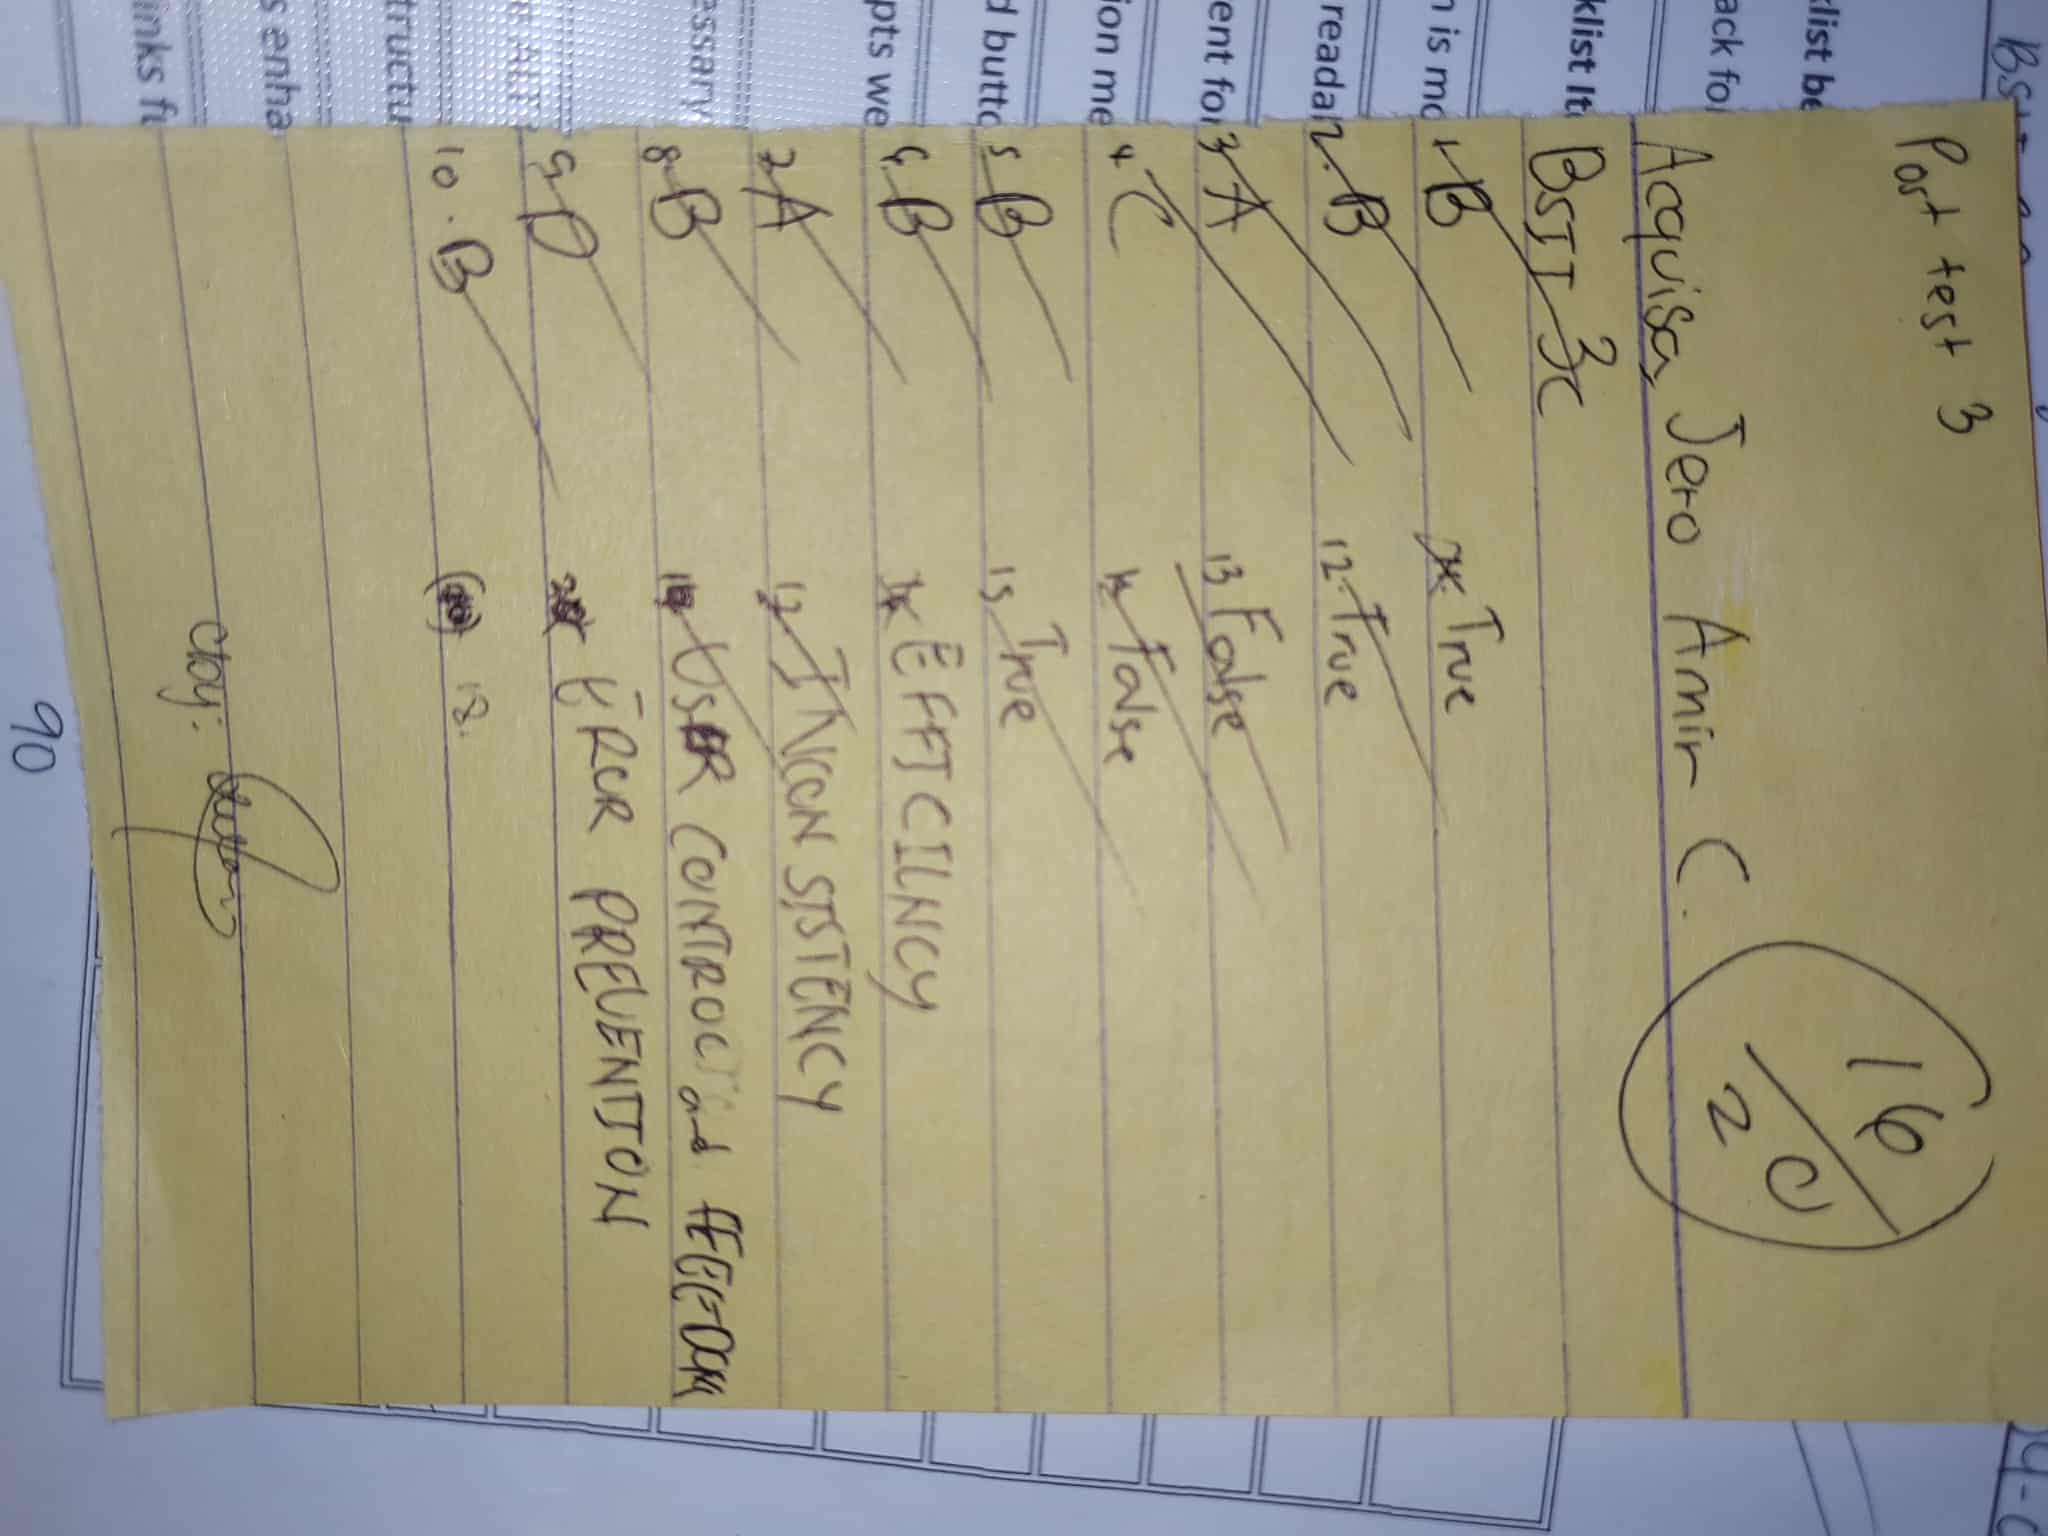 Post test 3
16/20
Acquisa, Jero Amir C.
BSIT 3C
1. B
2. B
3 A
4 C
5 B
6. B
7 A
8 B
9 D
10. B
True
12. True
13 False
14 False
15 True
16 EFFICILNCY
17 INCONSISTENCY
19 USER CONTROL and
20 ERCR PREVENTION
18.
Cby:
90
list be
ack for
klist Ite
n is mo
reada
ent for
ion me
d butto
pts we
essary
ALT
tructu
s enha
inks fu